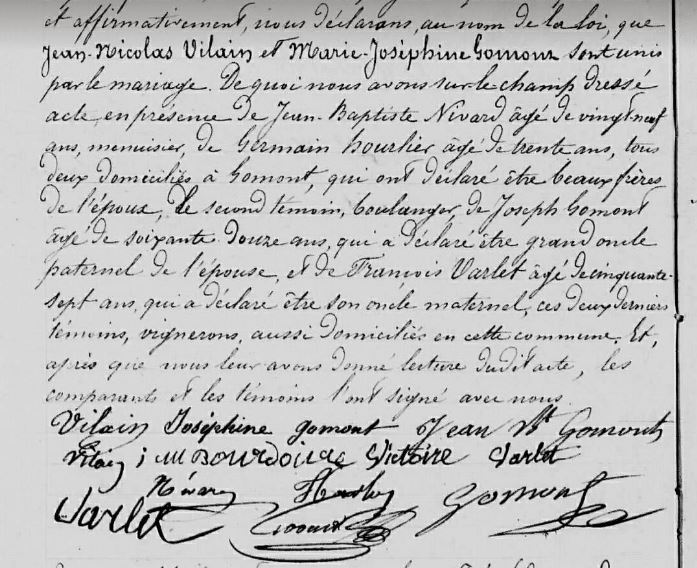 et affirmativement, nous déclarons, au nom de la loi, que
Jean-Nicolas Vilain et Marie-Joséphine Gomont sont unis
par le mariage. De quoi nous avons sur le champ dressé
acte, en présence de Jean-Baptiste Nivard âgé de vingt-neuf
ans, menuisier, de Germain hourlier âgé de trente ans, tous
deux domiciliés à Gomont, qui ont déclaré être beaux frères
de l'époux, le second témoin, boulanger, de Joseph Gomont
âgé de soixante douze ans, qui a déclaré être grand oncle
paternel de l'épouse, et de François Varlet âgé de cinquante-
sept ans, qui a déclaré être son oncle maternel, ces deux derniers
témoins, vignerons, aussi domiciliés en cette commune. Et,
après que nous leur avons donné lecture dudit acte, les
comparants et les témoins l'ont signé avec nous.
Vilain Joséphine gomont Jean Bte Gomont
Vilain Victoire Varlet
Nivard Gomont
Varlet